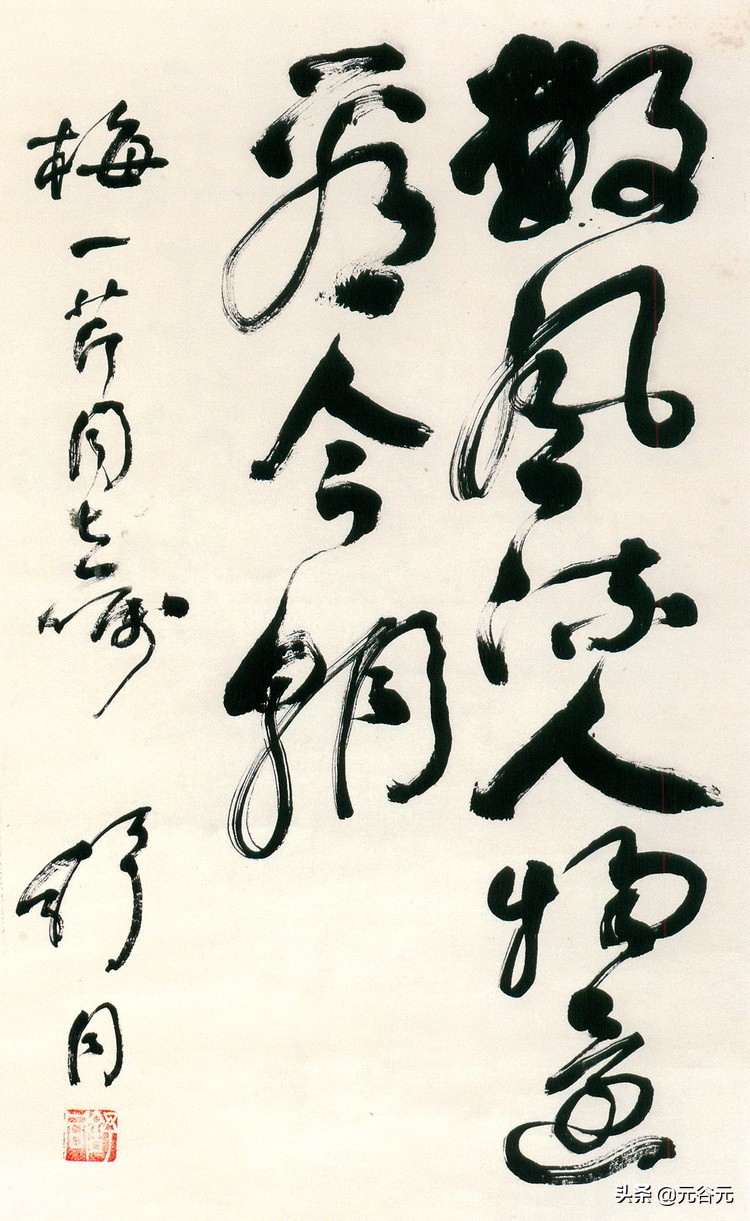 數風流人物還
看今朝
梅一芹同志嘱
舒同
头条 @元谷元